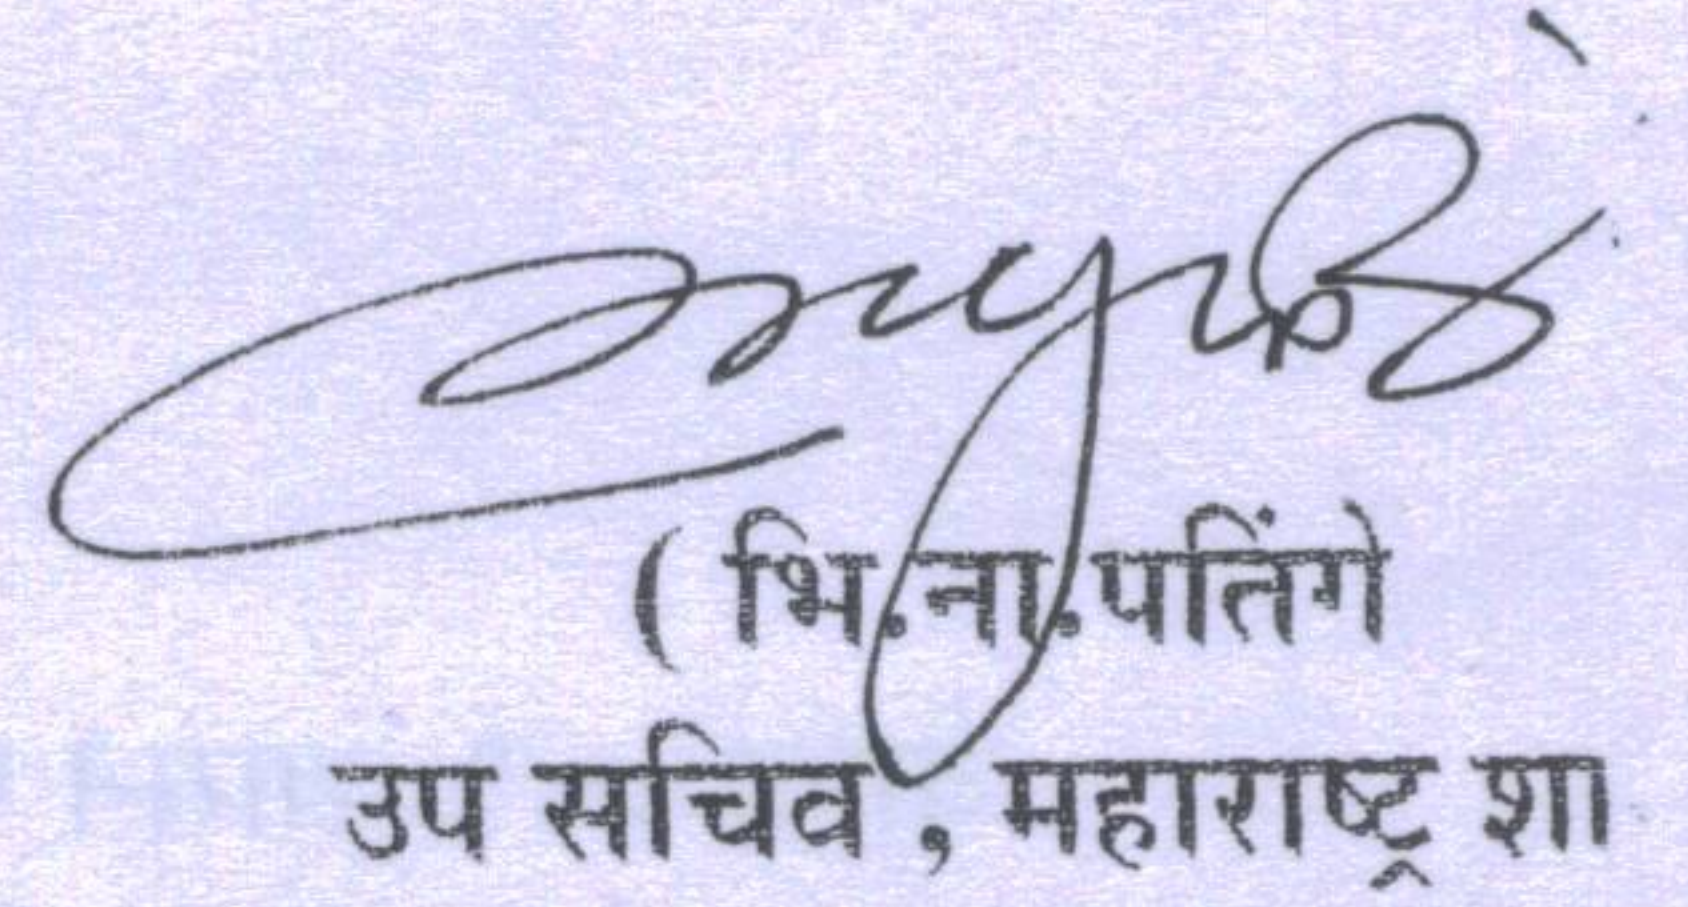 ( भि.ना.पतिंगे
उप सचिव , महाराष्ट्र शा